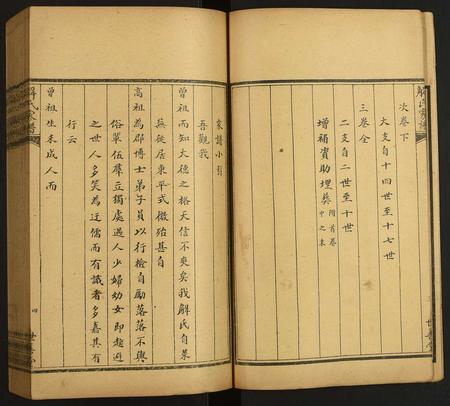 解氏家譜
次卷下
大支自十四世至十七世
三卷全
二支自二世至十世
增補資助埋葬附首卷中之末
世善堂
家譜小引
吾觀我
曾祖而知大德之格天信不爽矣我解氏自萊
蕪徙居東平式微殆甚自
高祖為郡博士弟子員以行檢自勵落落不與
俗輩伍群立獨處過人少婦幼女即趨避
之世人多笑為迂儒而有識者多嘉其有
行云
曾祖生未成人而
解氏家譜
四
世善堂